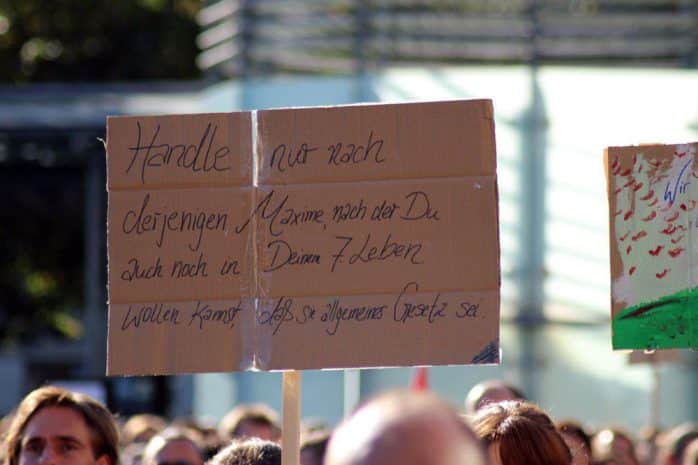 Handle nur nach
derjenigen Maxime, nach der Du
auch noch in Deinem 7. Leben
wollen kannst, daß sie allgemeines Gesetz sei.
Wir